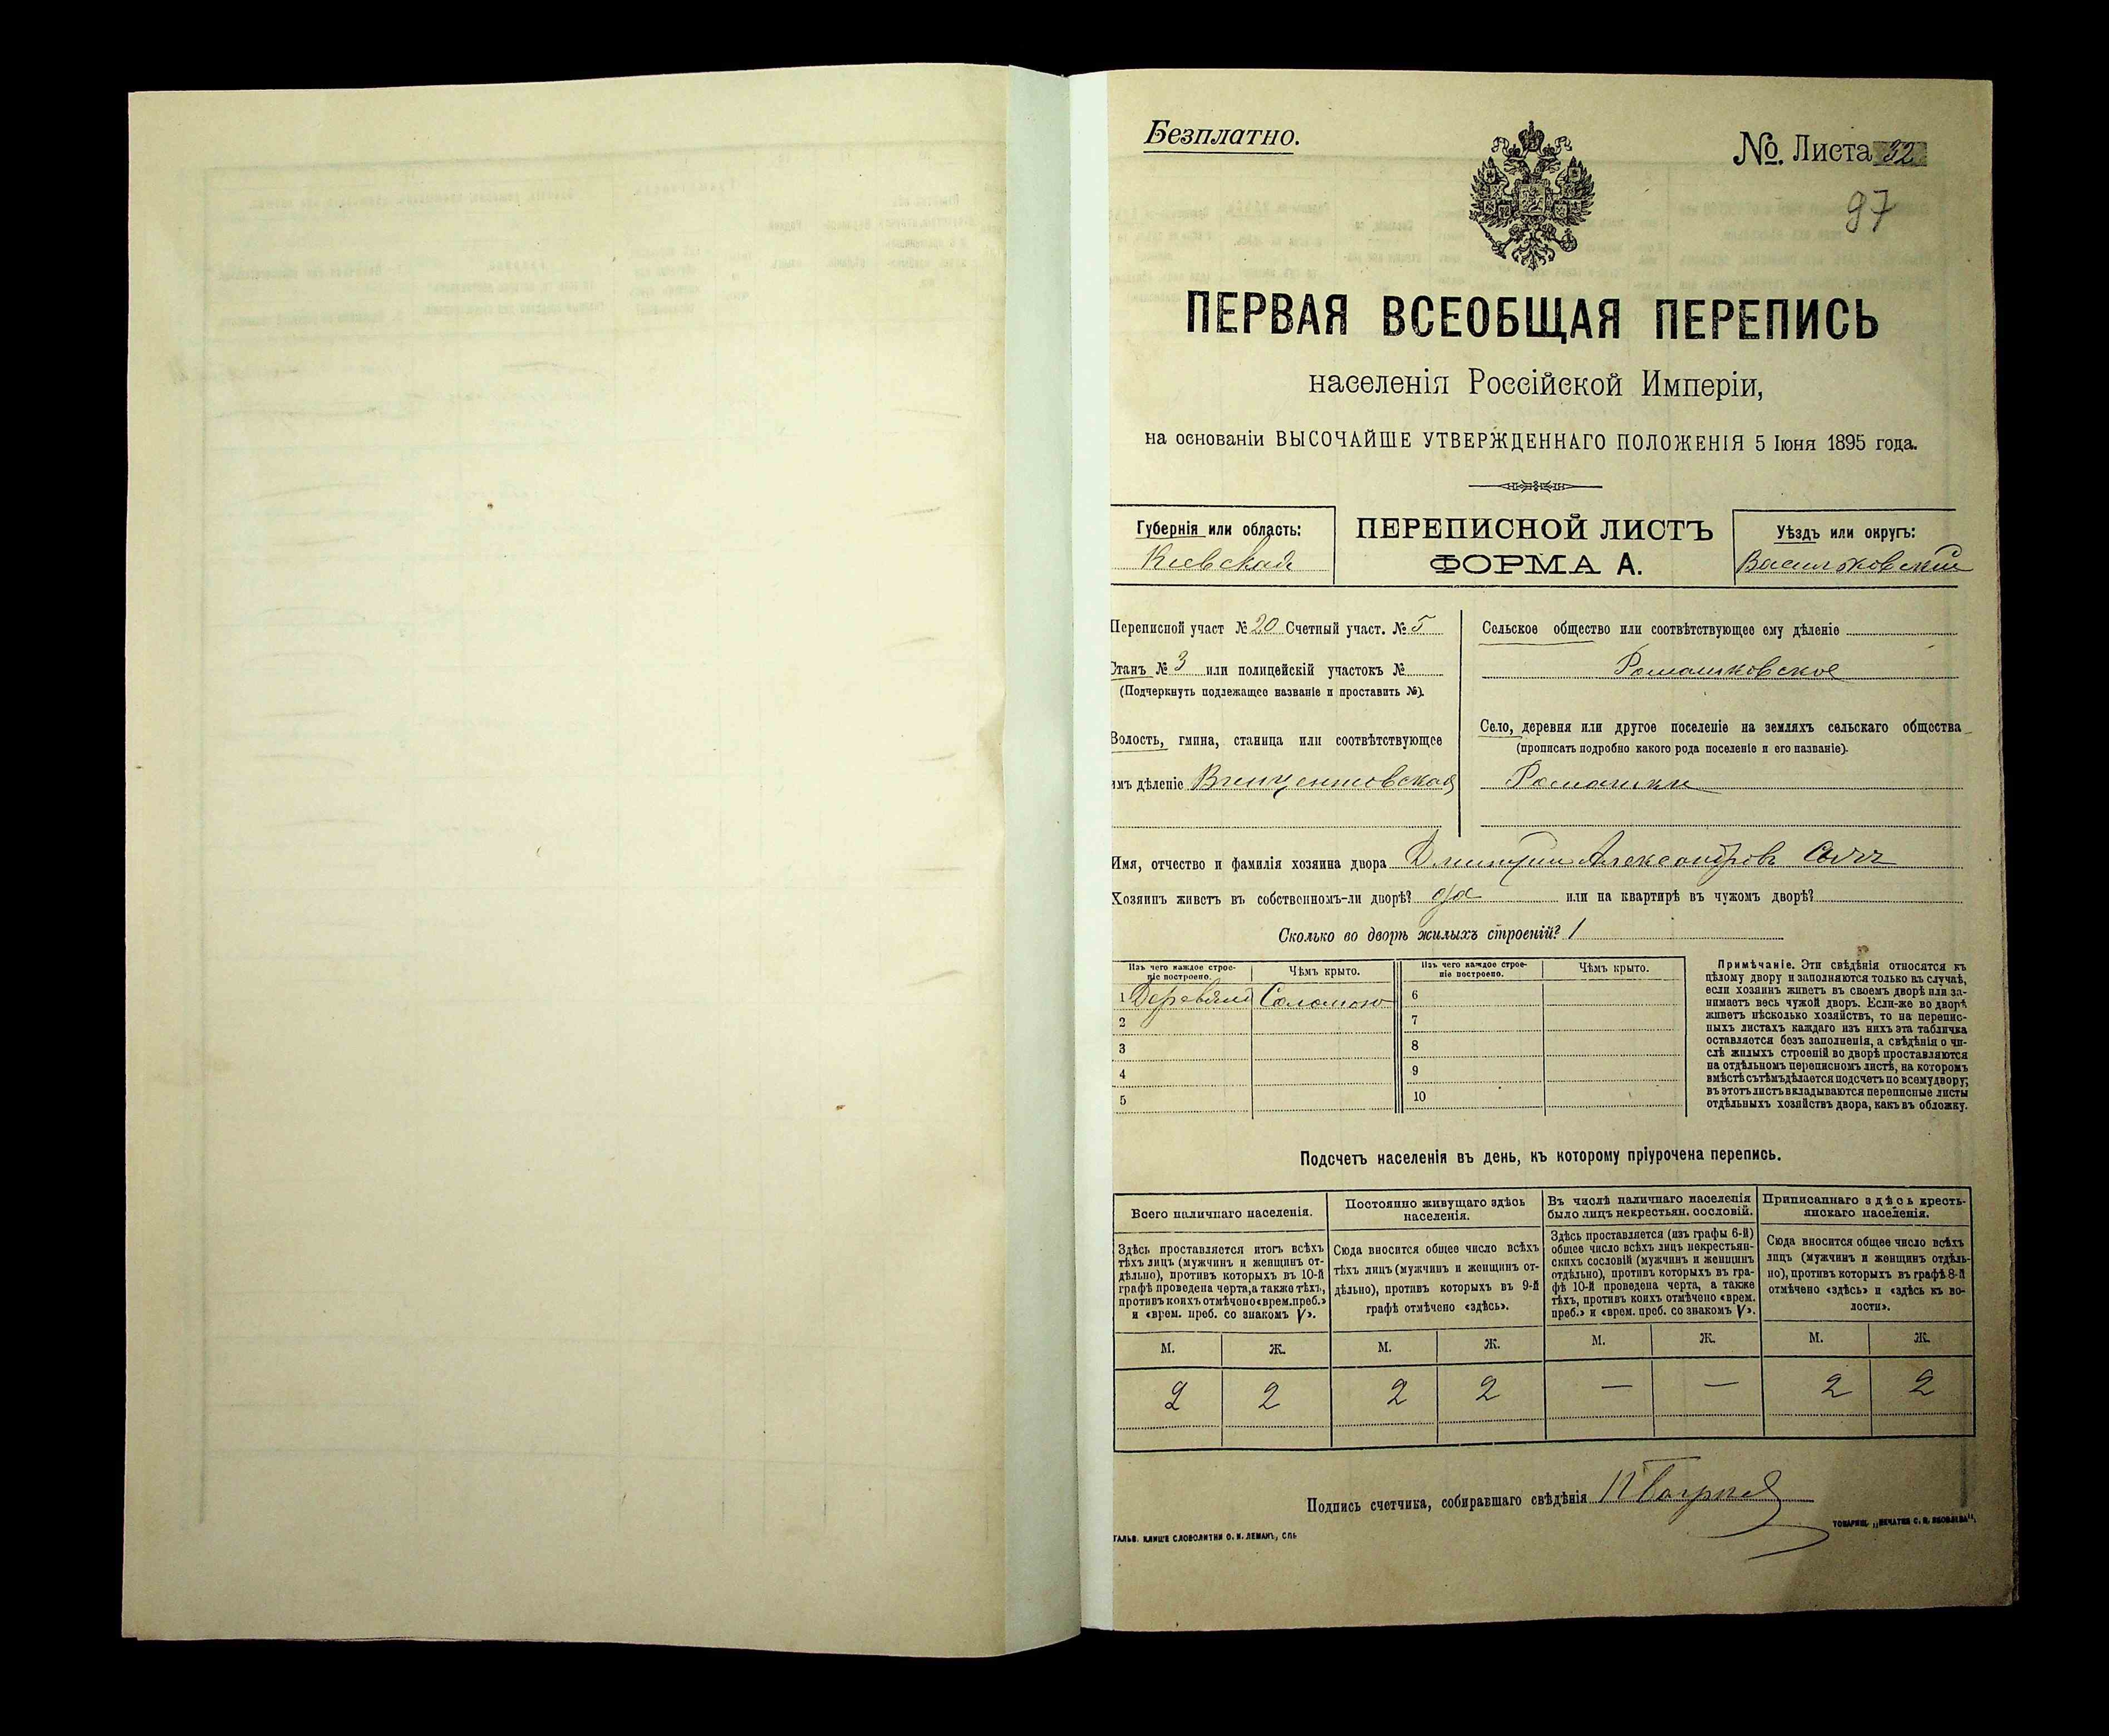 Безплатно.
№. Листа 32
97
ПЕРВАЯ ВСЕОБЩАЯ ПЕРЕПИСЬ
населенія Россійской Имперіи,
на основаніи ВЫСОЧАЙШЕ УТВЕРЖДЕННАГО ПОЛОЖЕНІЯ 5 Іюня 1895 года.
Губернія или область:
Кіевская
ПЕРЕПИСНОЙ ЛИСТЪ
ФОРМА А.
Уѣздъ или округъ:
Васильковскій
Переписной участ № 20 Счетный участ. № 5
Станъ № 3 или полицейскій участокъ №
(Подчеркнуть подлежащее названіе и проставить №).
Волость, гмина, станица или соотвѣтствующее
имъ дѣленіе Винцентовская
Сельское общество или соотвѣтствующее ему дѣленіе
Ромашковское
Село, деревня или другое поселеніе на земляхъ сельскаго общества
(прописать подробно какого рода поселеніе и его названіе).
Ромашки
Имя, отчество и фамилія хозяина двора Дмитрій Александровъ
Хозяинъ живетъ въ собственномъ-ли дворѣ? да или на квартирѣ въ чужомъ дворѣ?
Сколько во дворѣ жилыхъ строеній? 1
Изъ чего каждое строе-
ніе построено.
Чѣмъ крыто.
Изъ чего каждое строе-
ніе построено.
Чѣмъ крыто.
1 Соломою 6
2 7
3 8
4 9
5 10
Примѣчаніе. Эти свѣдѣнія относятся къ
цѣлому двору и заполняются только въ случаѣ,
если хозяинъ живетъ въ своемъ дворѣ или за-
нимаетъ весь чужой дворъ. Если-же во дворѣ
живетъ нѣсколько хозяйствъ, то на перепис-
ныхъ листахъ каждаго изъ нихъ эта табличка
оставляется безъ заполненія, а свѣдѣнія о чи-
слѣ жилыхъ строеній во дворѣ проставляются
на отдѣльномъ переписномъ листѣ, на которомъ
вмѣстѣ съ тѣмъ дѣлается подсчетъ по всему двору;
въ этотъ листъ вкладываются переписные листы
отдѣльныхъ хозяйствъ двора, какъ въ обложку.
Подсчетъ населенія въ день, къ которому пріурочена перепись.
Всего наличнаго населенія.
Здѣсь проставляется итогъ всѣхъ
тѣхъ лицъ (мужчинъ и женщинъ от-
дѣльно), противъ которыхъ въ 10-й
графѣ проведена черта, а также тѣхъ,
противъ коихъ отмѣчено «врем. преб.»
и «врем. преб. со знакомъ V».
Постоянно живущаго здѣсь
населенія.
Сюда вносится общее число всѣхъ
тѣхъ лицъ (мужчинъ и женщинъ от-
дѣльно), противъ которыхъ въ 9-й
графѣ отмѣчено «здѣсь».
Въ числѣ наличнаго населенія
было лицъ некрестьян. сословій.
Здѣсь проставляется (изъ графы 6-й)
общее число всѣхъ лицъ некрестьян-
скихъ сословій (мужчинъ и женщинъ
отдѣльно), противъ которыхъ въ гра-
фѣ 10-й проведена черта, а также
тѣхъ, противъ коихъ отмѣчено «врем.
преб.» и «врем. преб. со знакомъ V».
Приписаннаго здѣсь кресть-
янскаго населенія.
Сюда вносится общее число всѣхъ
лицъ (мужчинъ и женщинъ отдѣль-
но), противъ которыхъ въ графѣ 8-й
отмѣчено «здѣсь» и «здѣсь къ во-
лости».
М. Ж. М. Ж. М. Ж. М. Ж.
2 2 2 2 — — 2 2
Подпись счетчика, собиравшаго свѣдѣнія
ГАЛЬВ. КЛИШЕ СЛОВОЛИТНИ О. И. ЛЕМАНЪ, СПБ
ТОВАРИЩ. „ПЕЧАТНЯ С. П. ЯКОВЛЕВА",